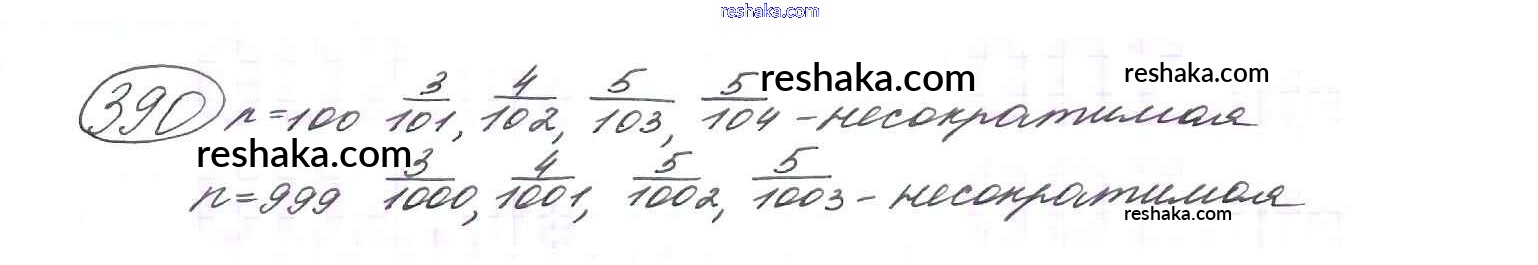 reshaka.com
390 n=100 3/101, 4/102, 5/103, 5/104 - несократимая
reshaka.com reshaka.com
reshaka.com
n=999 3/1000, 4/1001, 5/1002, 5/1003 - несократимая
reshaka.com